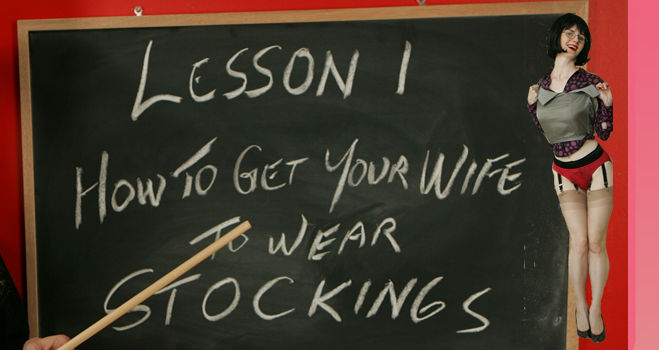 LESSON 1
HOW TO GET YOUR WIFE
TO WEAR
STOCKINGS